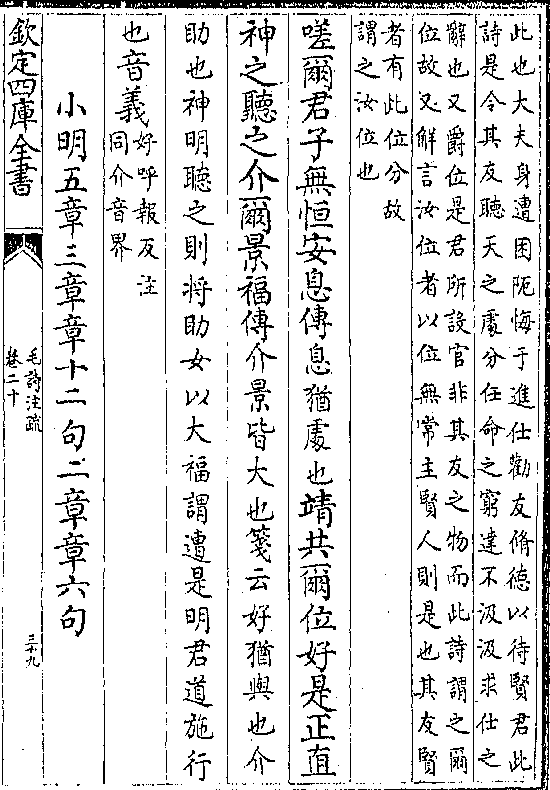 此也大夫身遭困阨悔于進仕勸友脩德以待賢君此
詩是令其友聽天之處分任命之窮達不汲汲求仕之
辭也又爵位是君所設官非其友之物而此詩謂之爾
位故又解言汝位者以位無常主賢人則是也其友賢
者有此位分故
謂之汝位也
嗟爾君子無恒安息傳息猶處也靖共爾位好是正直
神之聽之介爾景福傳介景皆大也箋云好猶與也介
助也神明聽之則將助女以大福謂遭是明君道施行
也音義好呼報反注
同介音界
小明五章三章章十二句二章章六句
欽定四庫全書
毛詩注疏
卷二十
三十九